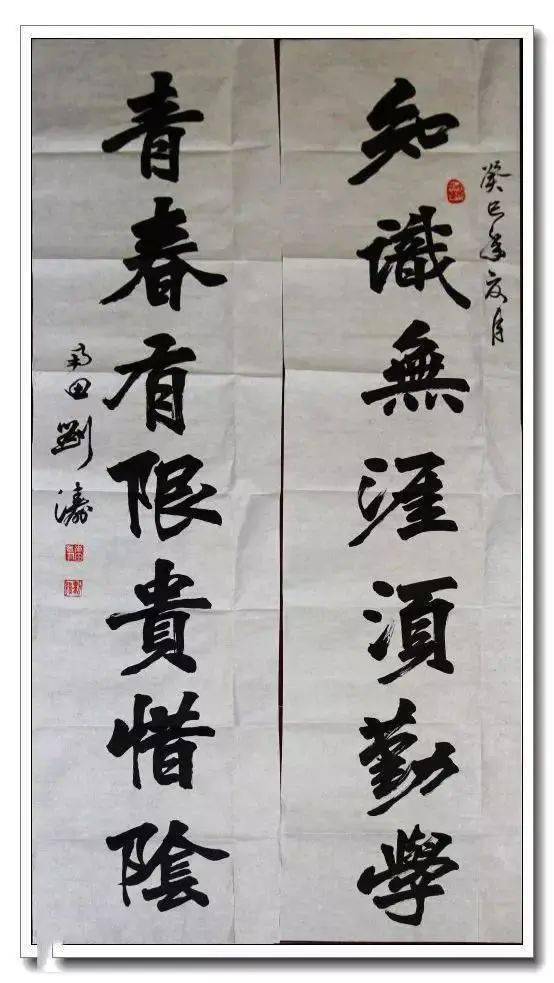 癸巳年夏月
知識無涯湏勤學
青春有限貴惜陰
田劉濤